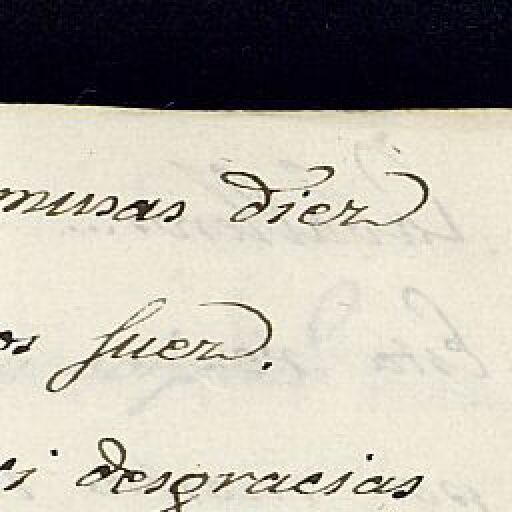 musas diez
os fuez.
i desgracias